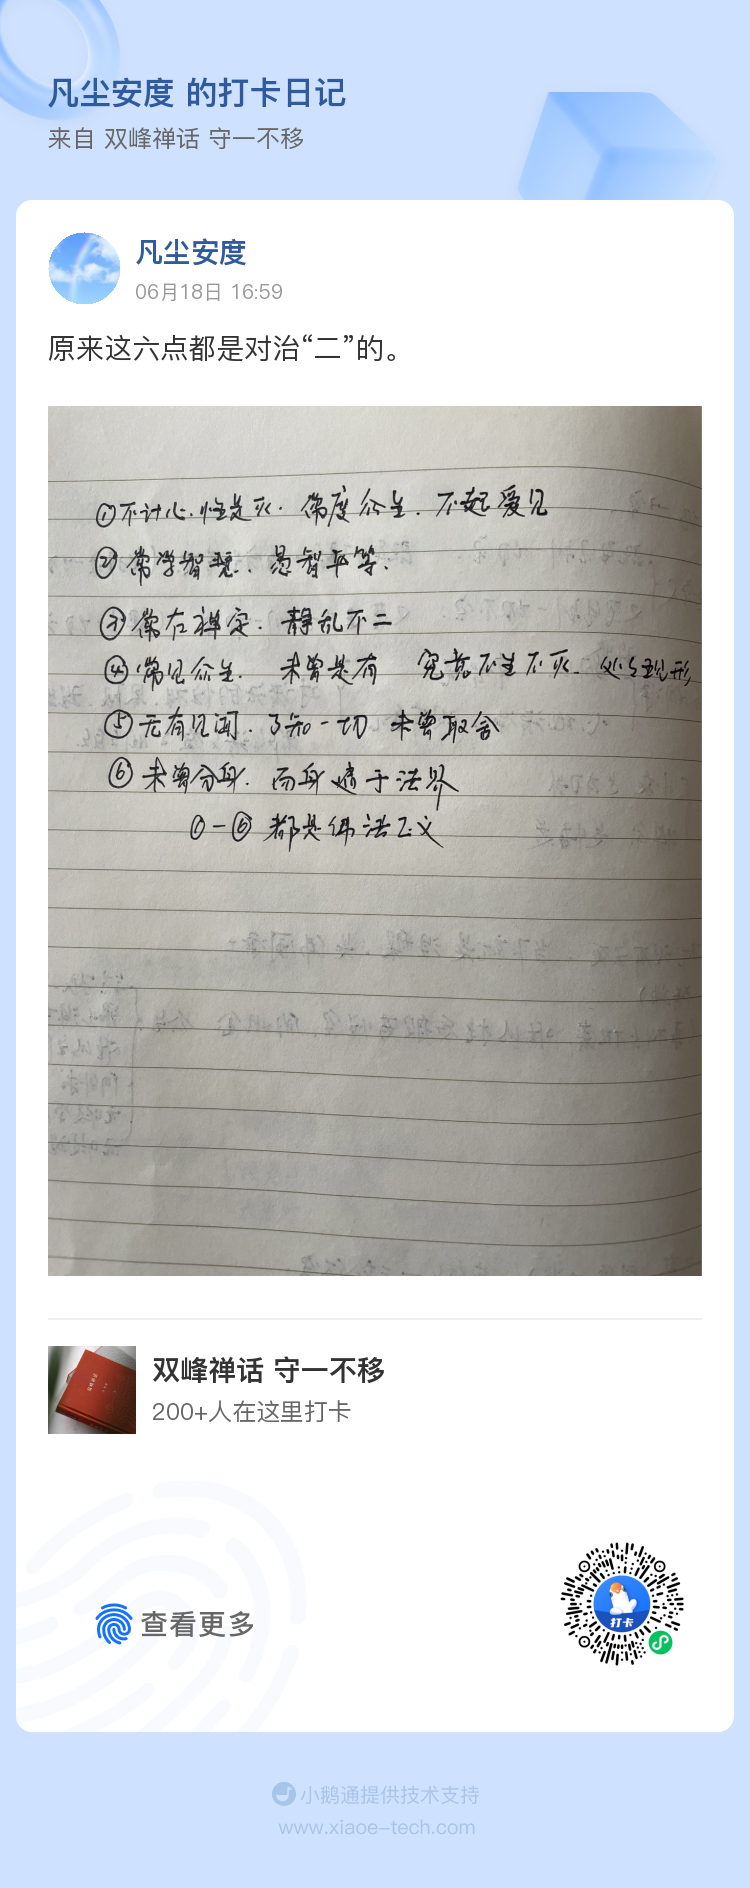 凡尘安度 的打卡日记
来自 双峰禅话 守一不移
凡尘安度
06月18日 16:59
原来这六点都是对治“二”的。
①不计心性是灭. 常度众生. 不起爱见
②常学智慧. 愚智平等.
③常在禅定. 静乱不二
④常见众生. 未曾是有 究竟不生不灭. 处处现形
⑤无有见闻. 了知一切 未曾取舍
⑥未曾分身. 而身遍于法界
①-⑥ 都是佛法正义
双峰禅话 守一不移
200+人在这里打卡
查看更多
打卡
小鹅通提供技术支持
www.xiaoe-tech.com